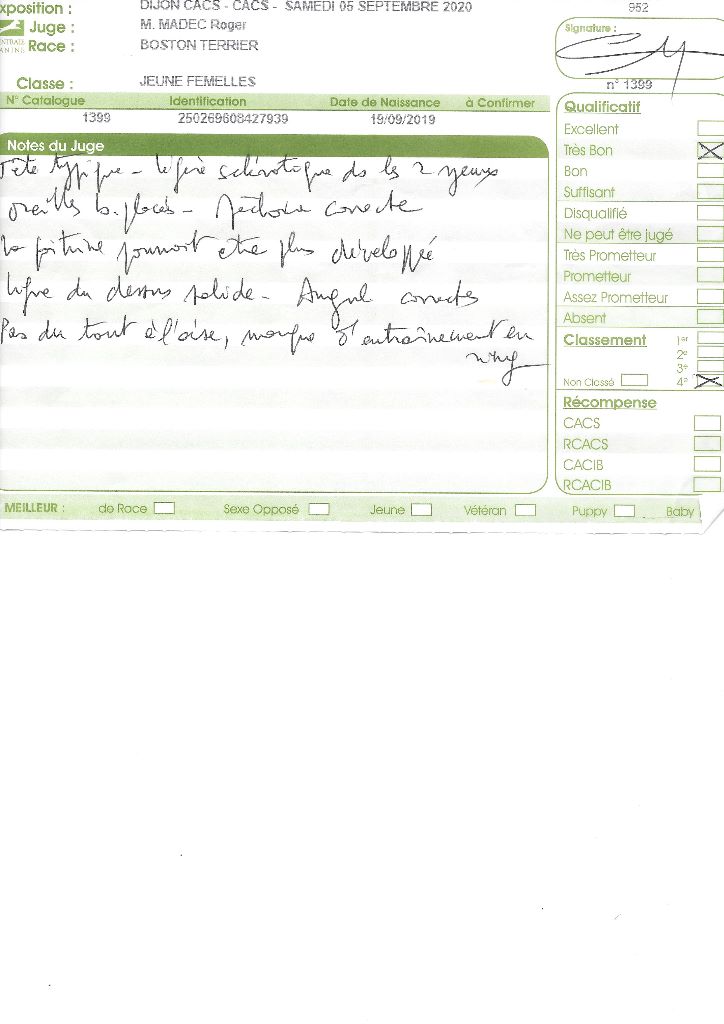 xposition : DIJON CACS - CACS - SAMEDI 05 SEPTEMBRE 2020
952
Juge : M. MADEC Roger
NTRALE
ANINE
Race : BOSTON TERRIER
Signature :
Classe : JEUNE FEMELLES
n° 1399
N° Catalogue Identification Date de Naissance à Confirmer
1399 250269608427939 19/09/2019
Notes du Juge
Tête typique - légère sclérotique ds les 2 yeux
oreilles b. placés - Machoire correcte
la poitrine pourrait etre plus développée
ligne du dessus solide - Angul correctes
Pas du tout à l'aise, manque d'entraînement en
ring
Qualificatif
Excellent
Très Bon
Bon
Suffisant
Disqualifié
Ne peut être jugé
Très Prometteur
Prometteur
Assez Prometteur
Absent
Classement 1er
2e
3e
Non Classé 4e
Récompense
CACS
RCACS
CACIB
RCACIB
MEILLEUR : de Race Sexe Opposé Jeune Vétéran Puppy Baby